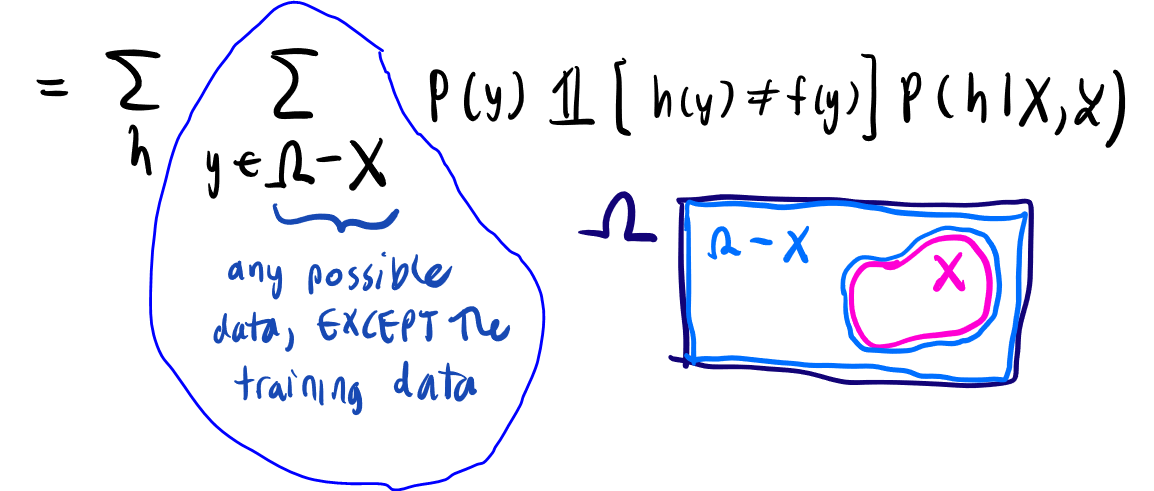 = ∑ ∑ P(y) 𝟙[h(y) ≠ f(y)] P(h|X, 𝓛)
h y ∈ Ω - X
any possible
data, EXCEPT The
training data
Ω
Ω - X
X